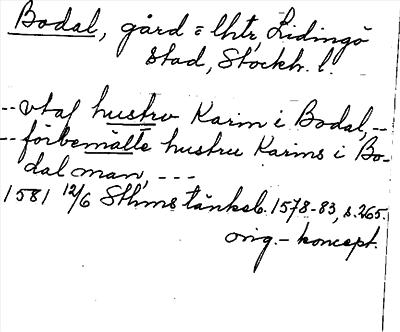 Bodal, gård = lht, Lidingö
stad, Stockh. l.
-- vtaf hustrv Karin i Bodal, --
-- förbemälte hustru Karins i Bo-
dal man, ---
1581 12/6 Sthms tänkeb. 1578-83, s. 265.
orig. - koncept.